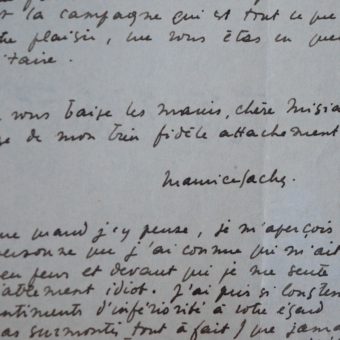 t la campagne qui est tout ce que
plaisir, que vous êtes en
itaire.
vous baise les mains, chère Misia
ge de mon très fidèle attachement
MauriceSachs.
ue quand j'y pense, je m'aperçois
ersonne que j'ai connue qui m'ait
eu peur et devant qui je me sente
atement idiot. J'ai puis si longtem
entiments d'infériorité à votre égard
as surmontés tout à fait) que jama